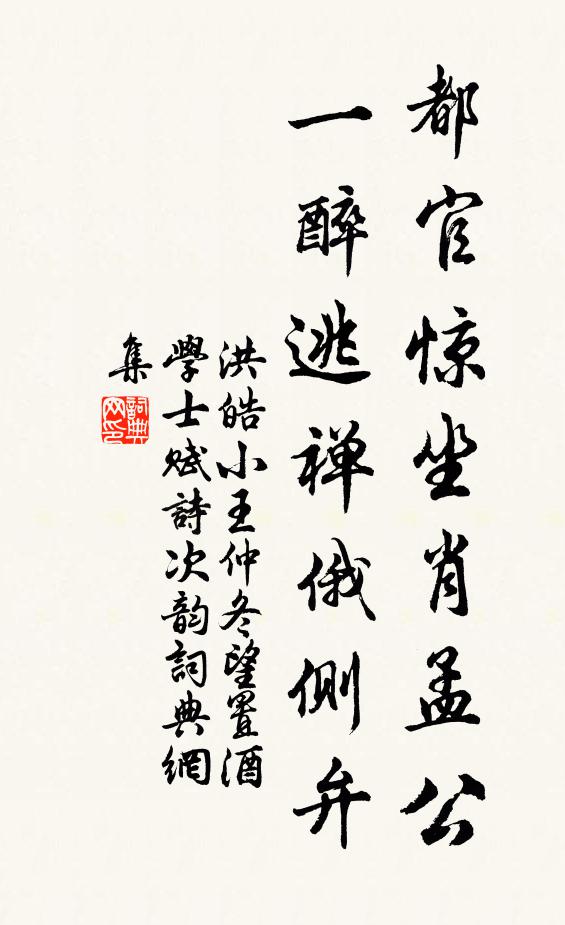 都官惊坐肖孟公
一醉逃禅俄侧弁
洪皓小王仲冬望置酒
學士赋詩次韵詞典網
集
詞典
网印